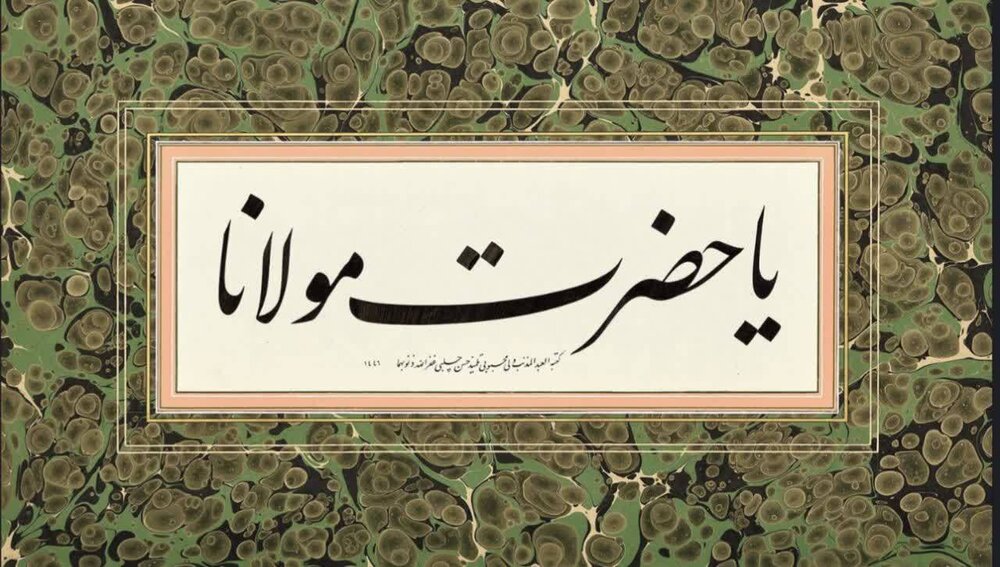 يا حضرت مولانا
كتبه العبد المذنب ولي محبوبي تلميذ حسن چلبي غفر الله ذنوبهما ١٤٤٦